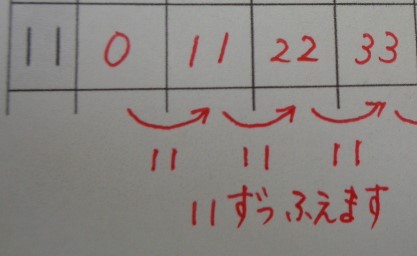 11 0 11 22 33
11 11 11
11ずつふえます